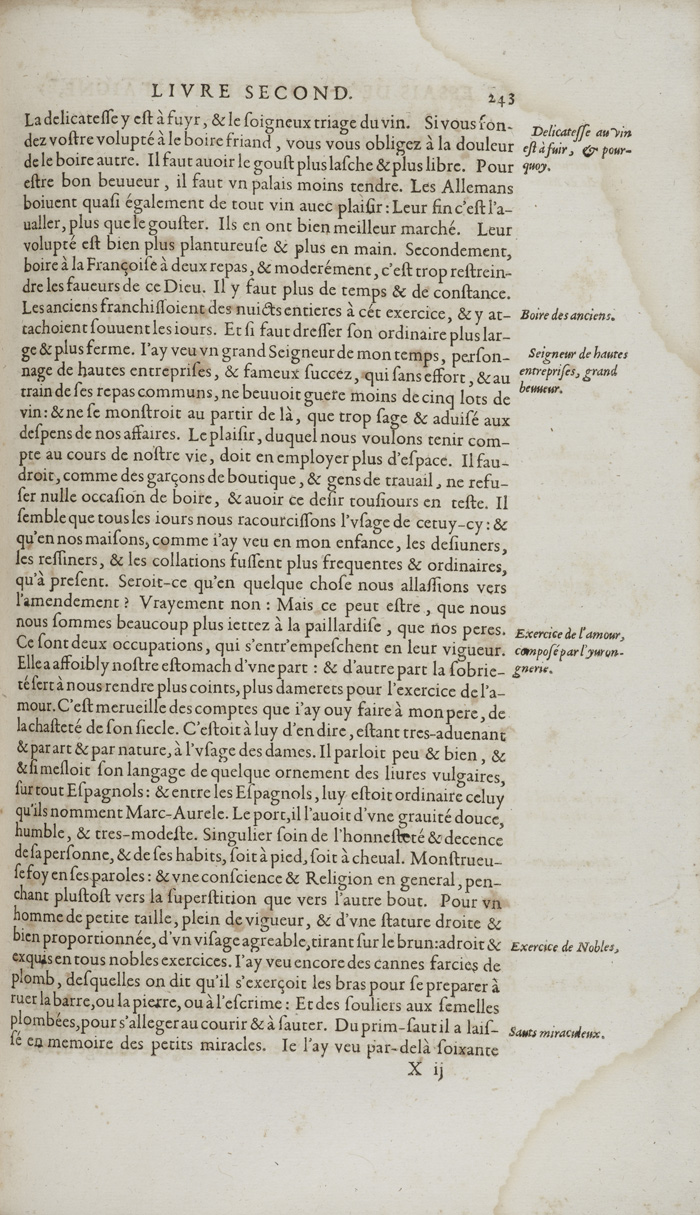 LIVRE SECOND.
243
La delicateſſe y eſt à fuyr, & le ſoigneux triage du vin. Si vous fon-
dez voſtre volupté à le boire friand, vous vous obligez à la douleur
de le boire autre. Il faut auoir le gouſt plus laſche & plus libre. Pour
eſtre bon beuueur, il faut vn palais moins tendre. Les Allemans
boiuent quaſi également de tout vin auec plaiſir: Leur fin c'eſt l'a-
ualler, plus que le gouſter. Ils en ont bien meilleur marché. Leur
volupté eſt bien plus plantureuſe & plus en main. Secondement,
boire à la Françoiſe à deux repas, & moderément, c'eſt trop reſtrein-
dre les faueurs de ce Dieu. Il y faut plus de temps & de conſtance.
Les anciens franchiſſoient des nuicts entieres à cét exercice, & y at-
tachoient ſouuent les iours. Et ſi faut dreſſer ſon ordinaire plus lar-
ge & plus ferme. I'ay veu vn grand Seigneur de mon temps, perſon-
nage de hautes entrepriſes, & fameux ſuccez, qui ſans effort, & au
train de ſes repas communs, ne beuuoit guere moins de cinq lots de
vin: & ne ſe monſtroit au partir de là, que trop ſage & aduiſé aux
deſpens de nos affaires. Le plaiſir, duquel nous voulons tenir com-
pte au cours de noſtre vie, doit en employer plus d'eſpace. Il fau-
droit, comme des garçons de boutique, & gens de trauail, ne refu-
ſer nulle occaſion de boire, & auoir ce deſir touſiours en teſte. Il
ſemble que tous les iours nous racourciſſons l'vſage de cetuy-cy: &
qu'en nos maiſons, comme i'ay veu en mon enfance, les deſiuners,
les reſſiners, & les collations fuſſent plus frequentes & ordinaires,
qu'à preſent. Seroit-ce qu'en quelque choſe nous allaſſions vers
l'amendement? Vrayement non: Mais ce peut eſtre, que nous
nous ſommes beaucoup plus iettez à la paillardiſe, que nos peres.
Ce ſont deux occupations, qui s'entr'empeſchent en leur vigueur.
Elle a affoibly noſtre eſtomach d'vne part: & d'autre part la ſobrie-
té ſert à nous rendre plus coints, plus damerets pour l'exercice de l'a-
mour. C'eſt merueille des comptes que i'ay ouy faire à mon pere, de
la chaſteté de ſon ſiecle. C'eſtoit à luy d'en dire, eſtant tres-aduenant
& par art & par nature, à l'vſage des dames. Il parloit peu & bien, &
& ſi meſloit ſon langage de quelque ornement des liures vulgaires,
ſur tout Eſpagnols: & entre les Eſpagnols, luy eſtoit ordinaire celuy
qu'ils nomment Marc-Aurele. Le port, il l'auoit d'vne grauité douce,
humble, & tres-modeſte. Singulier ſoin de l'honneſteté & decence
de ſa perſonne, & de ſes habits, ſoit à pied, ſoit à cheual. Monſtrueu-
ſe foy en ſes paroles: & vne conſcience & Religion en general, pen-
chant pluſtoſt vers la ſuperſtition que vers l'autre bout. Pour vn
homme de petite taille, plein de vigueur, & d'vne ſtature droite &
bien proportionnée, d'vn viſage agreable, tirant ſur le brun: adroit &
exquis en tous nobles exercices. I'ay veu encore des cannes farcies de
plomb, deſquelles on dit qu'il s'exerçoit les bras pour ſe preparer à
ruer la barre, ou la pierre, ou à l'eſcrime: Et des ſouliers aux ſemelles
plombées, pour s'alleger au courir & à ſauter. Du prim-ſaut il a laiſ-
ſé en memoire des petits miracles. Ie l'ay veu par-delà ſoixante
X ij
Delicateſſe au vin
eſt à fuir, & pour-
quoy.
Boire des anciens.
Seigneur de hautes
entrepriſes, grand
beuueur.
Exercice de l'amour,
compoſé par l'yuron-
gnerie.
Exercice de Nobles,
Sauts miraculeux.